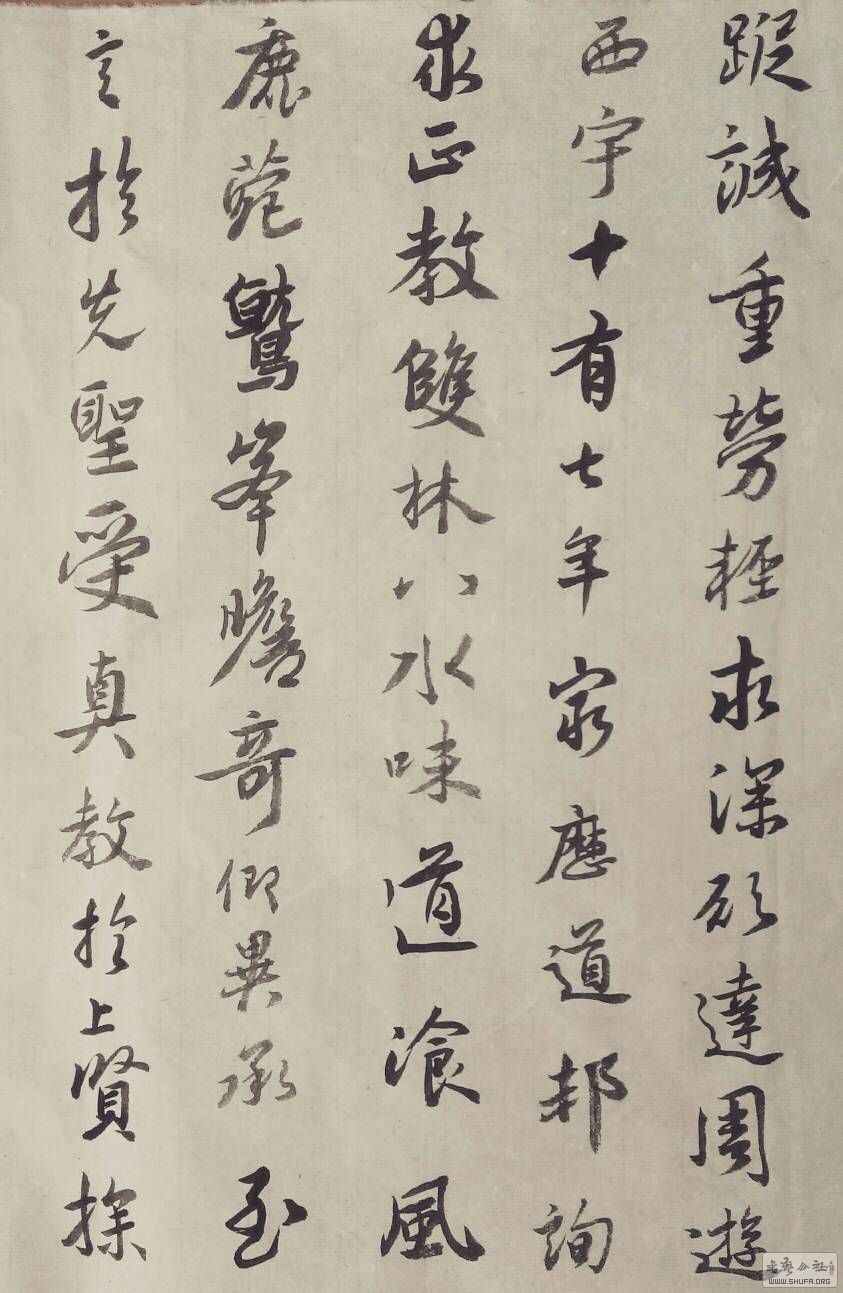 蹤誠重勞輕求深欲達周遊
西宇十有七年窮歷道邦詢
求正教雙林八水味道飡風
鹿菀鷲峯瞻奇仰異承至
言於先聖受真教於上賢探
WWW.SHUFA.ORG